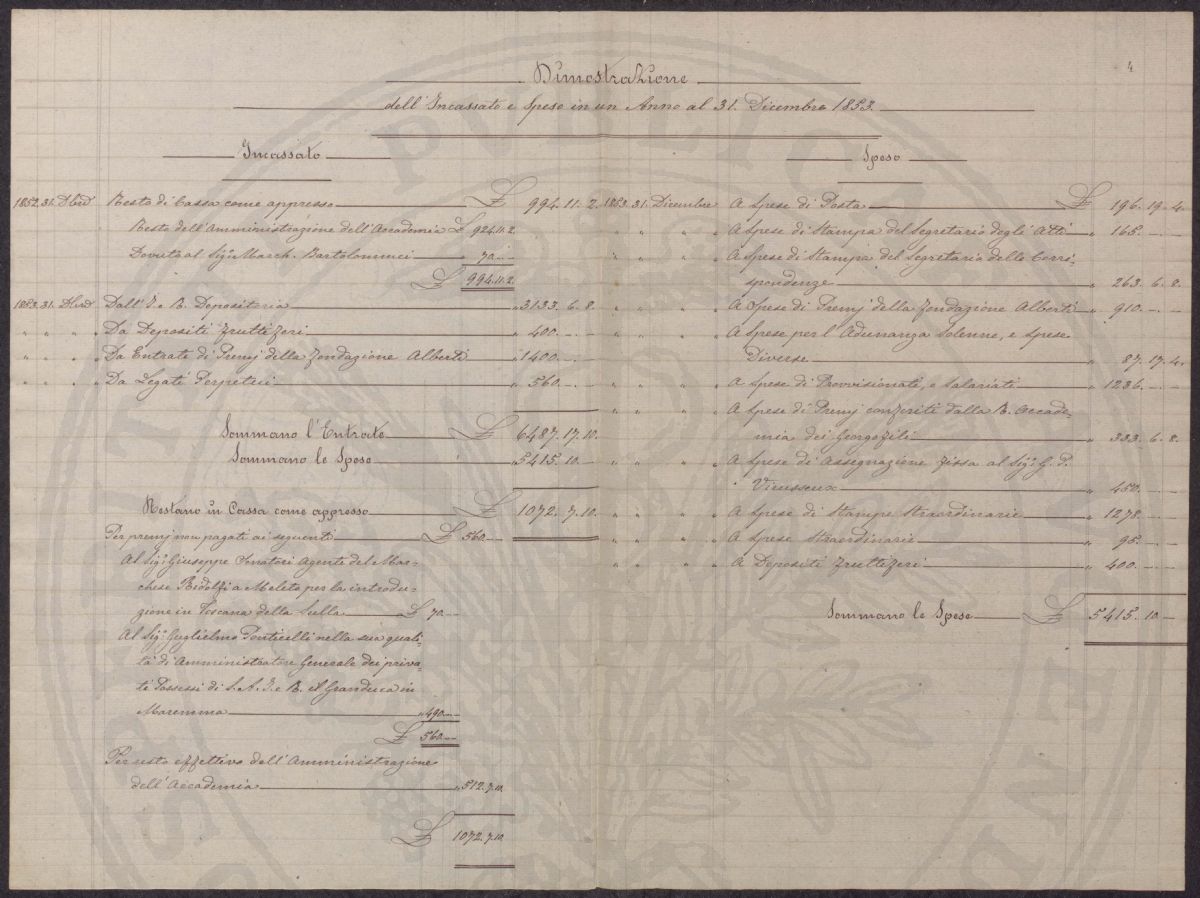 4
Dimostrazione
dell'Incassato e Speso in un Anno al 31. Dicembre 1853.
Incassato
1852. 31. Dbre Resto di Cassa come appresso £ 994. 11. 2.
Resto dell'Amministrazione dell'Accademia £ 924. 11. 2.
Dovuta al Sig.r March. Bartolommei " 70. –
£ 994. 11. 2.
1853. 31. Dbre Dall'I. e R. Depositeria " 3133. 6. 8.
" " " Da Depositi Fruttiferi " 400. – –
" " " Da Entrate di Premj della Fondazione Alberti " 1400. – –
" " " Da Legati Perpetui " 560. – –
Sommano l'Entrate £ 6487. 17. 10.
Sommano le Spese " 5415. 10. –
Restano in Cassa come appresso £ 1072. 7. 10.
Per premj non pagati ai seguenti £ 560. –
Al Sig.r Giuseppe Tonatori Agente del Mar-
chese Ridolfi a Meleto per la introdu-
zione in Toscana della Sulla £ 70. –
Al Sig.r Guglielmo Ponticelli nella sua quali-
tà di Amministratore Generale dei priva-
ti Possessi di S. A. I. e R. il Granduca in
Maremma " 490. –
£ 560. –
Per resto effettivo dell'Amministrazione
dell'Accademia " 512. 7. 10.
£ 1072. 7. 10.
Speso
1853. 31. Dicembre A Spese di Posta £ 196. 19. 4.
" " " A Spese di Stampa del Segretario degli Atti " 165. – –
" " " A Spese di Stampa del Segretario delle Corri-
spondenze " 263. 6. 8.
" " " A Spese di Premj della Fondazione Alberti " 910. – –
" " " A Spese per l'Adunanza Solenne, e Spese
Diverse " 87. 17. 4.
" " " A Spese di Provvisionati, e Salariati " 1236. – –
" " " A Spese di Premj conferiti dalla R. Accade-
mia dei Georgofili " 333. 6. 8.
" " " A Spese di Assegnazione fissa al Sig.r G. P.
Vieusseux " 450. – –
" " " A Spese di Stampe Straordinarie " 1278. – –
" " " A Spese Straordinarie " 95. – –
" " " A Depositi Fruttiferi " 400. – –
Sommano le Spese £ 5415. 10. –